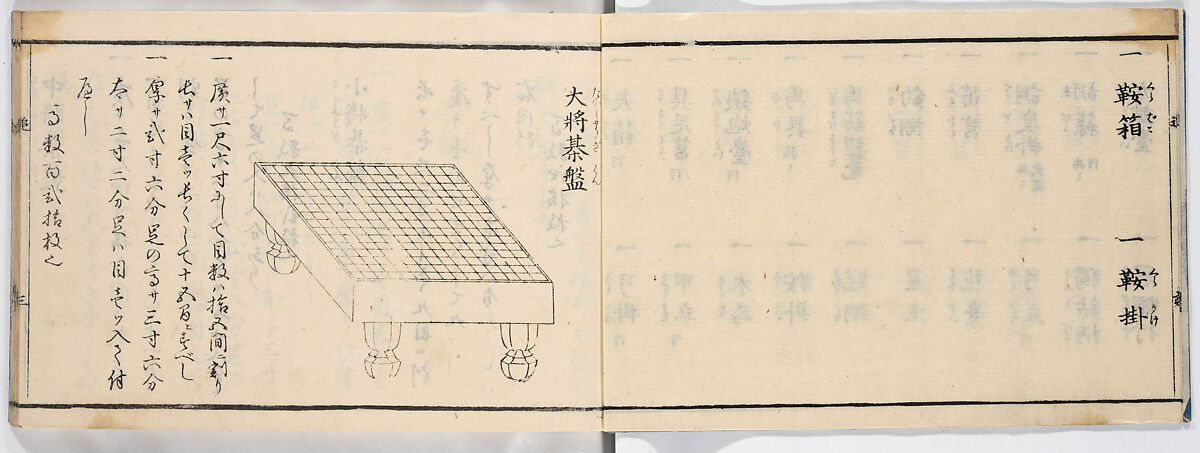 一 鞍箱
一 鞍掛
大將棊盤
一 廣サ一尺六寸にして目数ハ拾五間ニ割り
長サハ目壱ツ長くして十五間ニすべし
一 厚サ弐寸六分足の高サ三寸六分
太サ二寸二分足ハ目壱ツ入て付
べし
馬数百弐拾枚也
三